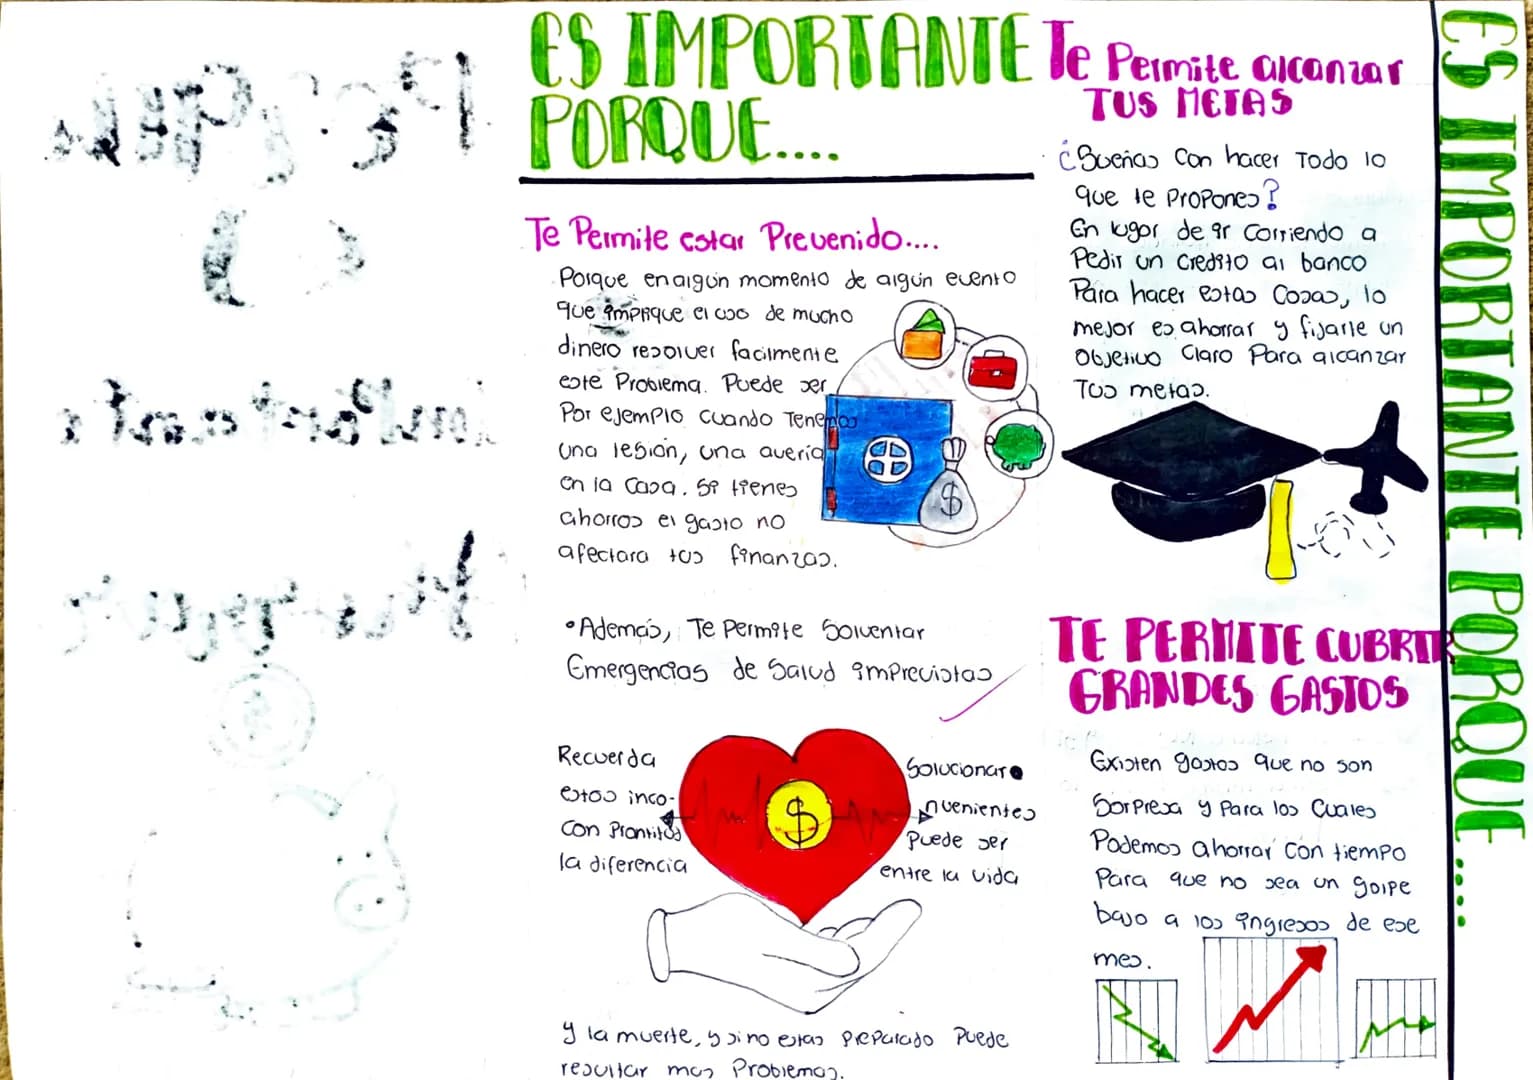 ES IMPORTANTE
PORQUE....
Te Permite estar Prevenido....
Porque en algún momento de algún evento
que implique el uso de mucho
dinero resolver facilmente
este Problema. Puede ser
Por ejemplo cuando Tenemos
una lesión, una avería
en la casa. Si tienes
ahorros el gasto no
afectara tus finanzas.
•Además, Te permite Solventar
Emergencias de Salud imprevistas
Recuerda Solucionar
estos inco- nvenientes
Con Prontitud Puede ser
la diferencia entre la vida
$
$
y la muerte, y si no estas preparado Puede
resultar mas Problemas.
Te Permite alcanzar
TUS METAS
¿Sueñas Con hacer Todo lo
que te Propones?
En lugar de ir Corriendo a
Pedir un credito al banco
Para hacer estas Cosas, lo
mejor es ahorrar y fijarte un
Objetivo Claro Para alcanzar
Tus metas.
TE PERMITE CUBRIR
GRANDES GASTOS
Existen gastos que no son
Sorpresa y Para los Cuales
Podemos ahorrar con tiempo
Para que no sea un golpe
bajo a los ingresos de ese
mes.
ES IMPORTANTE PORQUE....